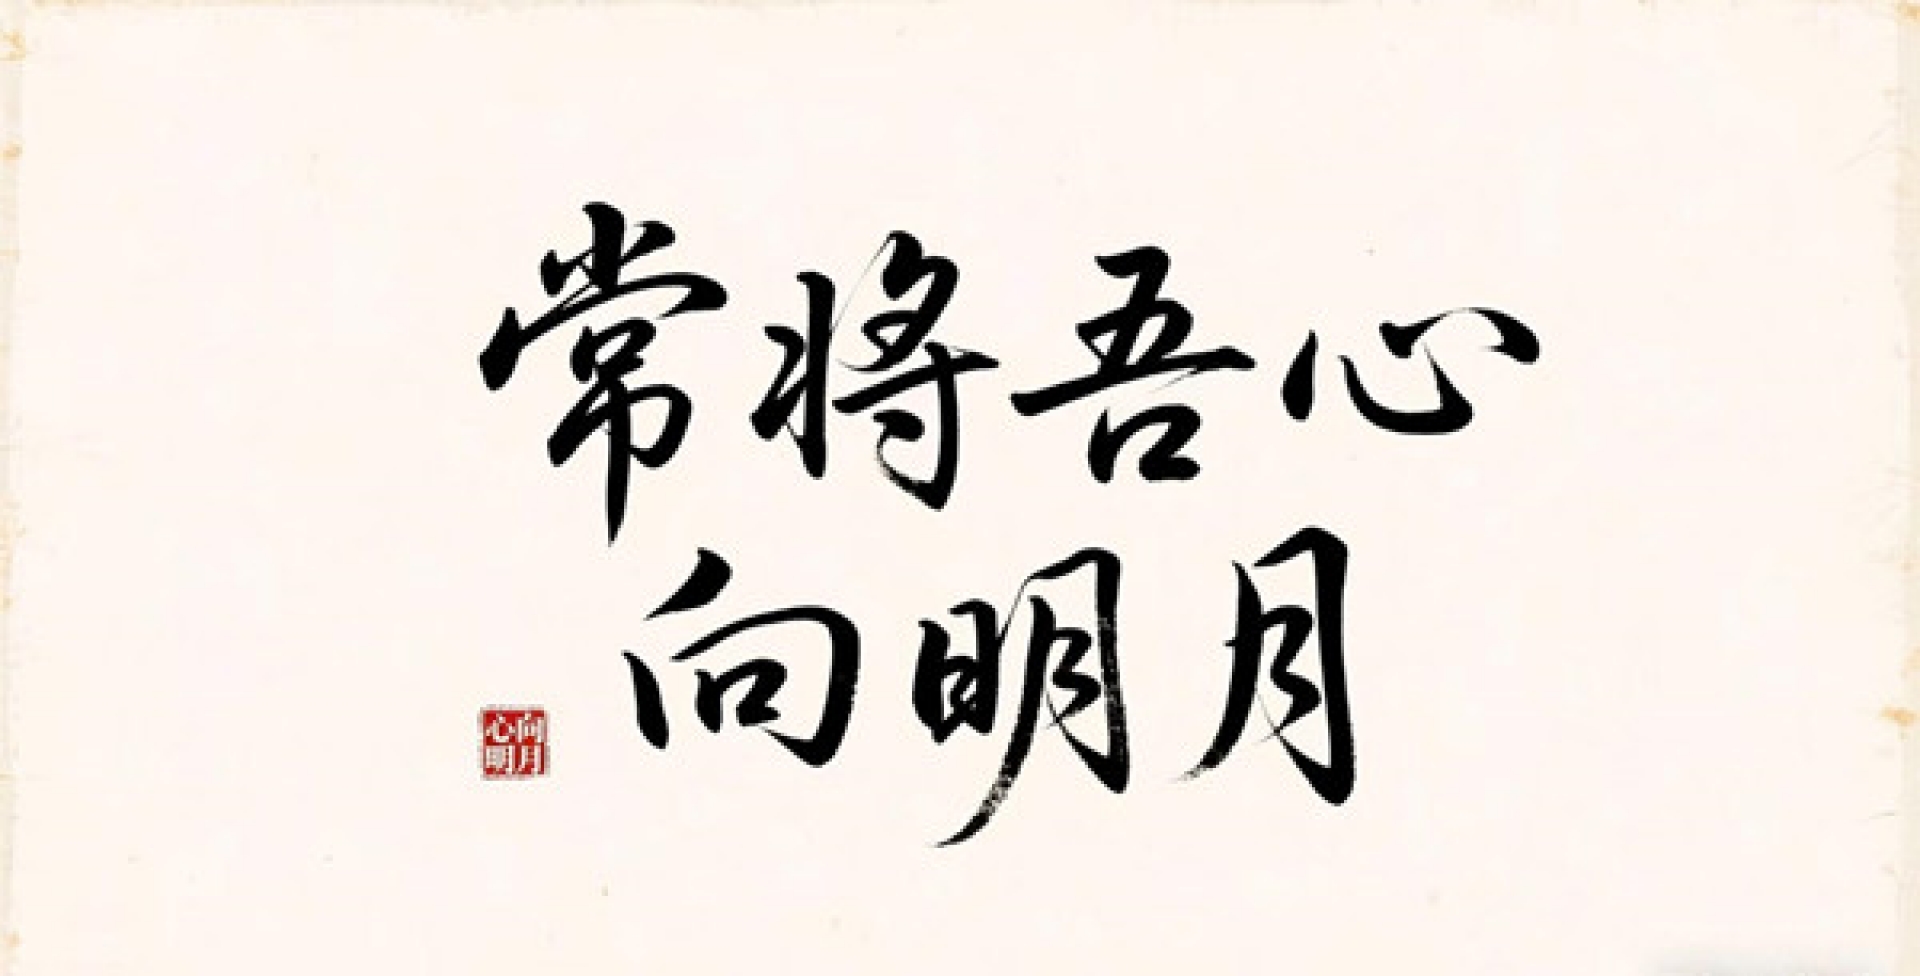 常将吾心
向明月
心向
明月